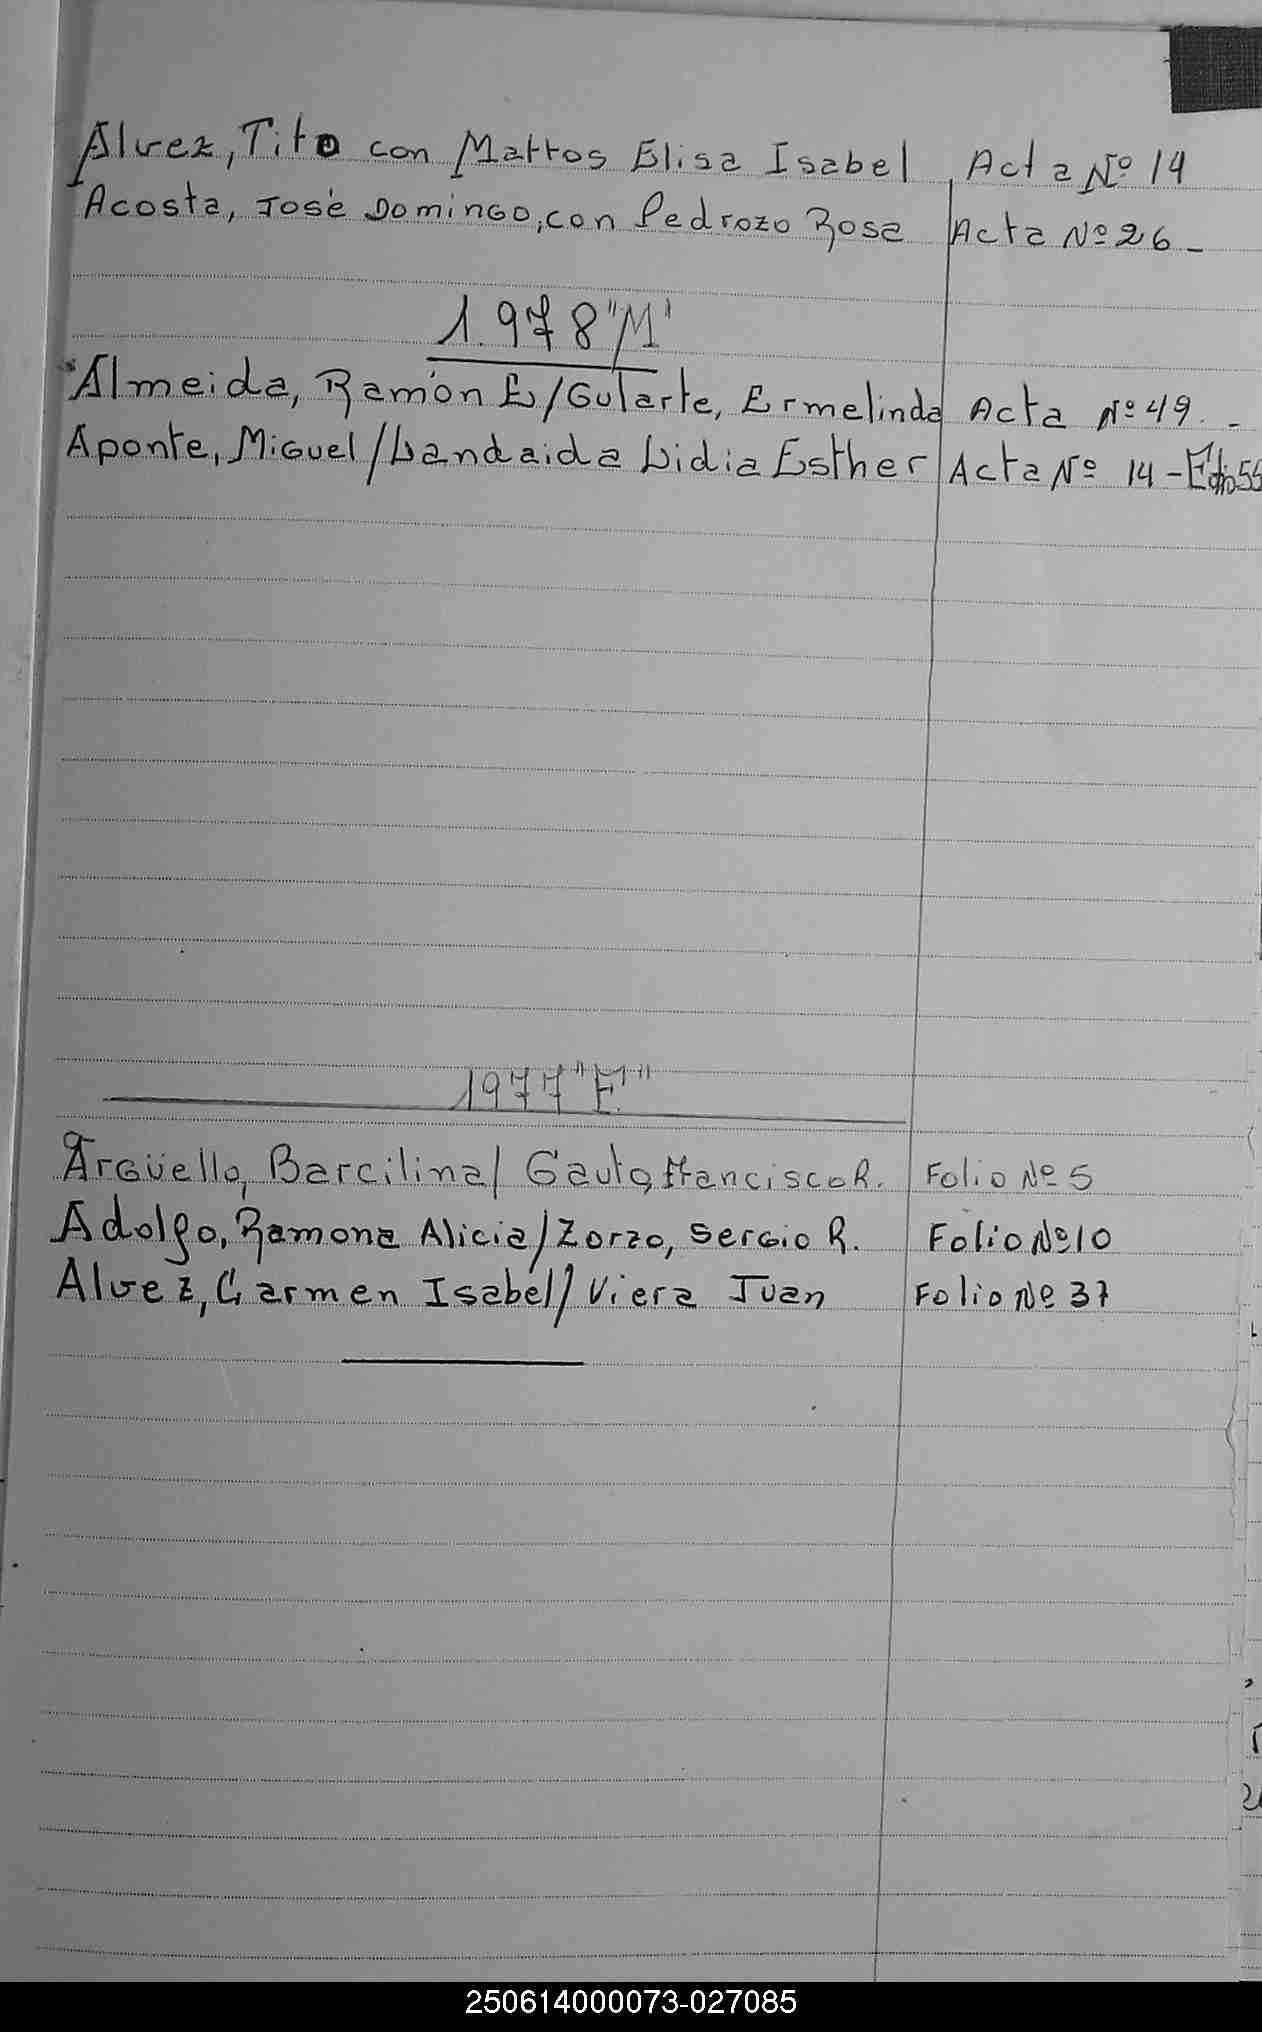 Alvez, Tito con Mattos Elisa Isabel Acta Nº 14
Acosta, José Domingo, con Pedrozo Rosa Acta Nº 26 -
1.978 "M"
Almeida, Ramón E/Gularte, Ermelinda Acta Nº 49. -
Aponte, Miguel/Landaida Lidia Esther Acta Nº 14 -
1977 "F"
Argüello, Barcilina/ Gauto Francisco R. Folio Nº 5
Adolfo, Ramona Alicia/Zorzo, Sergio R. Folio Nº 10
Alvez, Carmen Isabel/Viera Juan Folio Nº 37
250614000073-027085